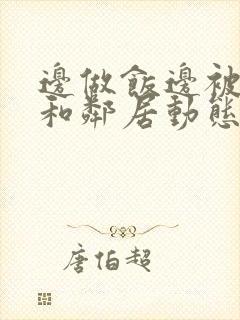 邊做飯邊被
和鄰居動態
唐伯超